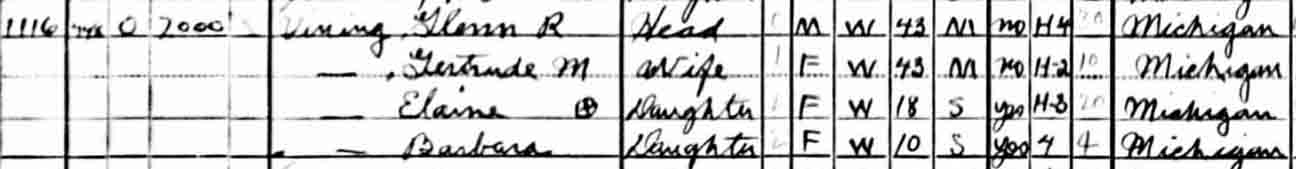 1116 O 2000 Vining, Glenn R Head M W 43 M no H4 Michigan
— , Gertrude M Wife F W 43 M no H-2 10 Michigan
— Elaine Daughter F W 18 S yes H-3 20 Michigan
— Barbara Daughter F W 10 S yes 4 4 Michigan